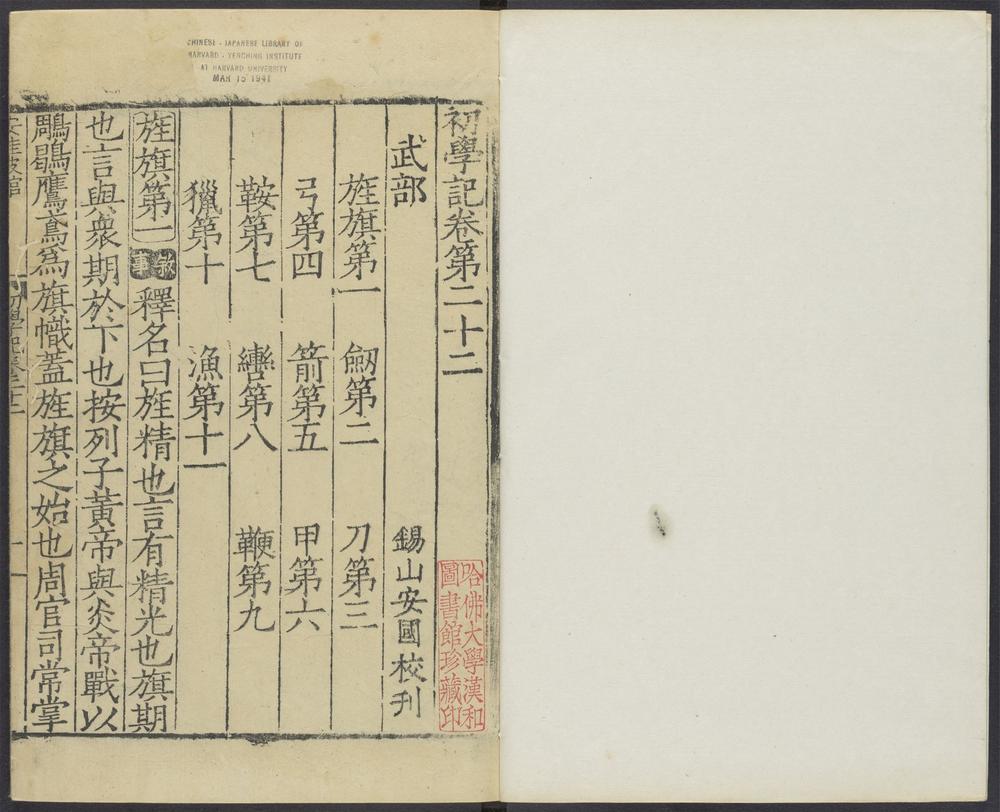 CHINESE - JAPANESE LIBRARY OF
HARVARD - YENCHING INSTITUTE
AT HARVARD UNIVERSITY
MAR 15 1941
初學記卷第二十二
哈佛大學漢和
圖書館珍藏印
武部 錫山安國校刊
旌旗第一 劒第二 刀第三
弓第四 箭第五 甲第六
鞍第七 轡第八 鞭第九
獵第十 漁第十一
旌旗第一 敘事 釋名曰旌精也言有精光也旗期
也言與衆期於下也按列子黃帝與炎帝戰以
鵰鶡鷹鳶爲旗幟蓋旌旗之始也周官司常掌